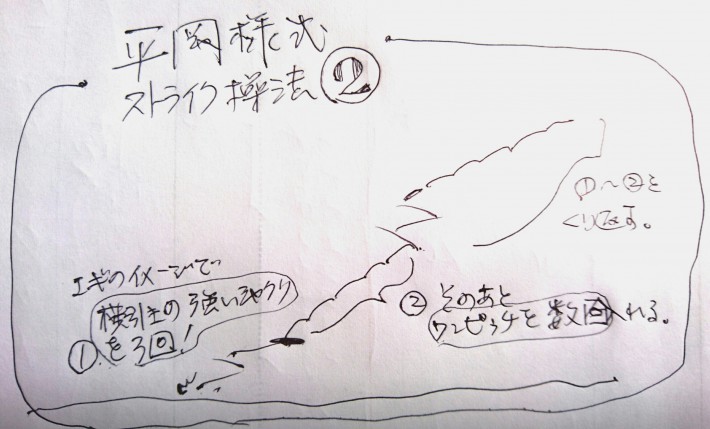 平岡様式
ストライク操法②
①〜②を
くり返す。
エギのイメージで
横引きの強いシャクリ
①を3回!
②そのあと
ワンピッチを数回入れる。